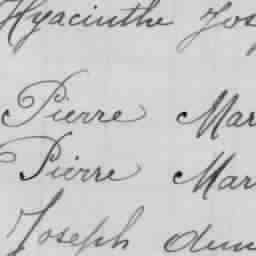 Hyacinthe Jos
Pierre Mar
Pierre Mar
Joseph